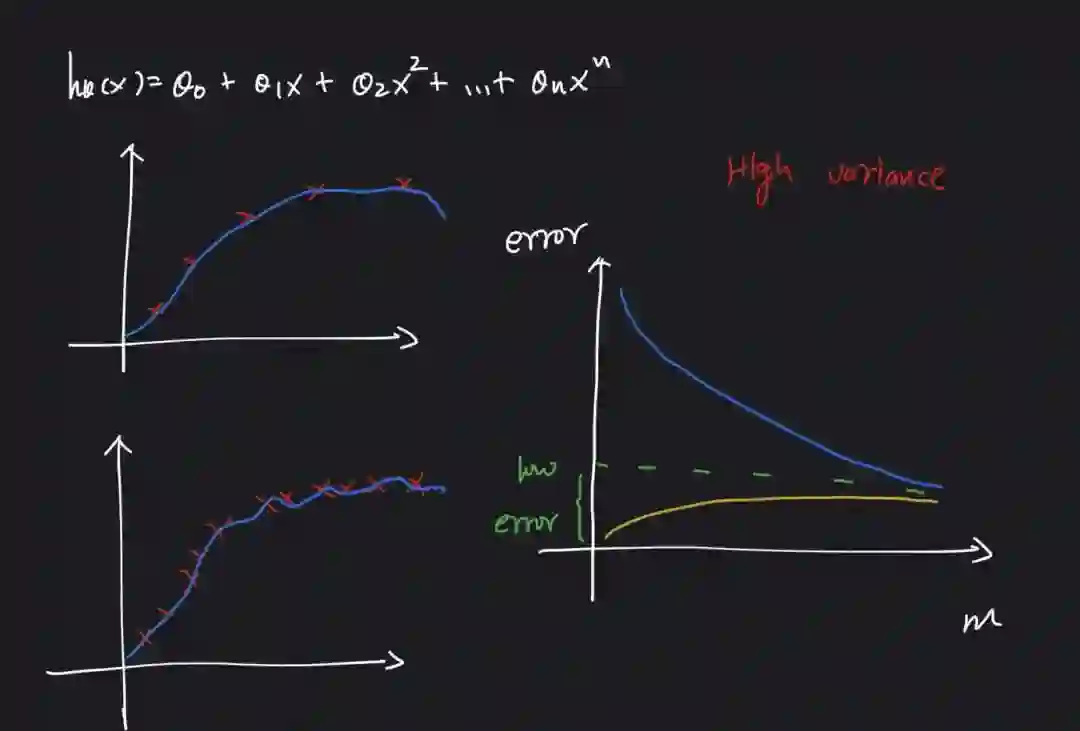 hθ(x) = θ₀ + θ₁x + θ₂x² + ... + θₙxⁿ
High variance
error
low
error
m